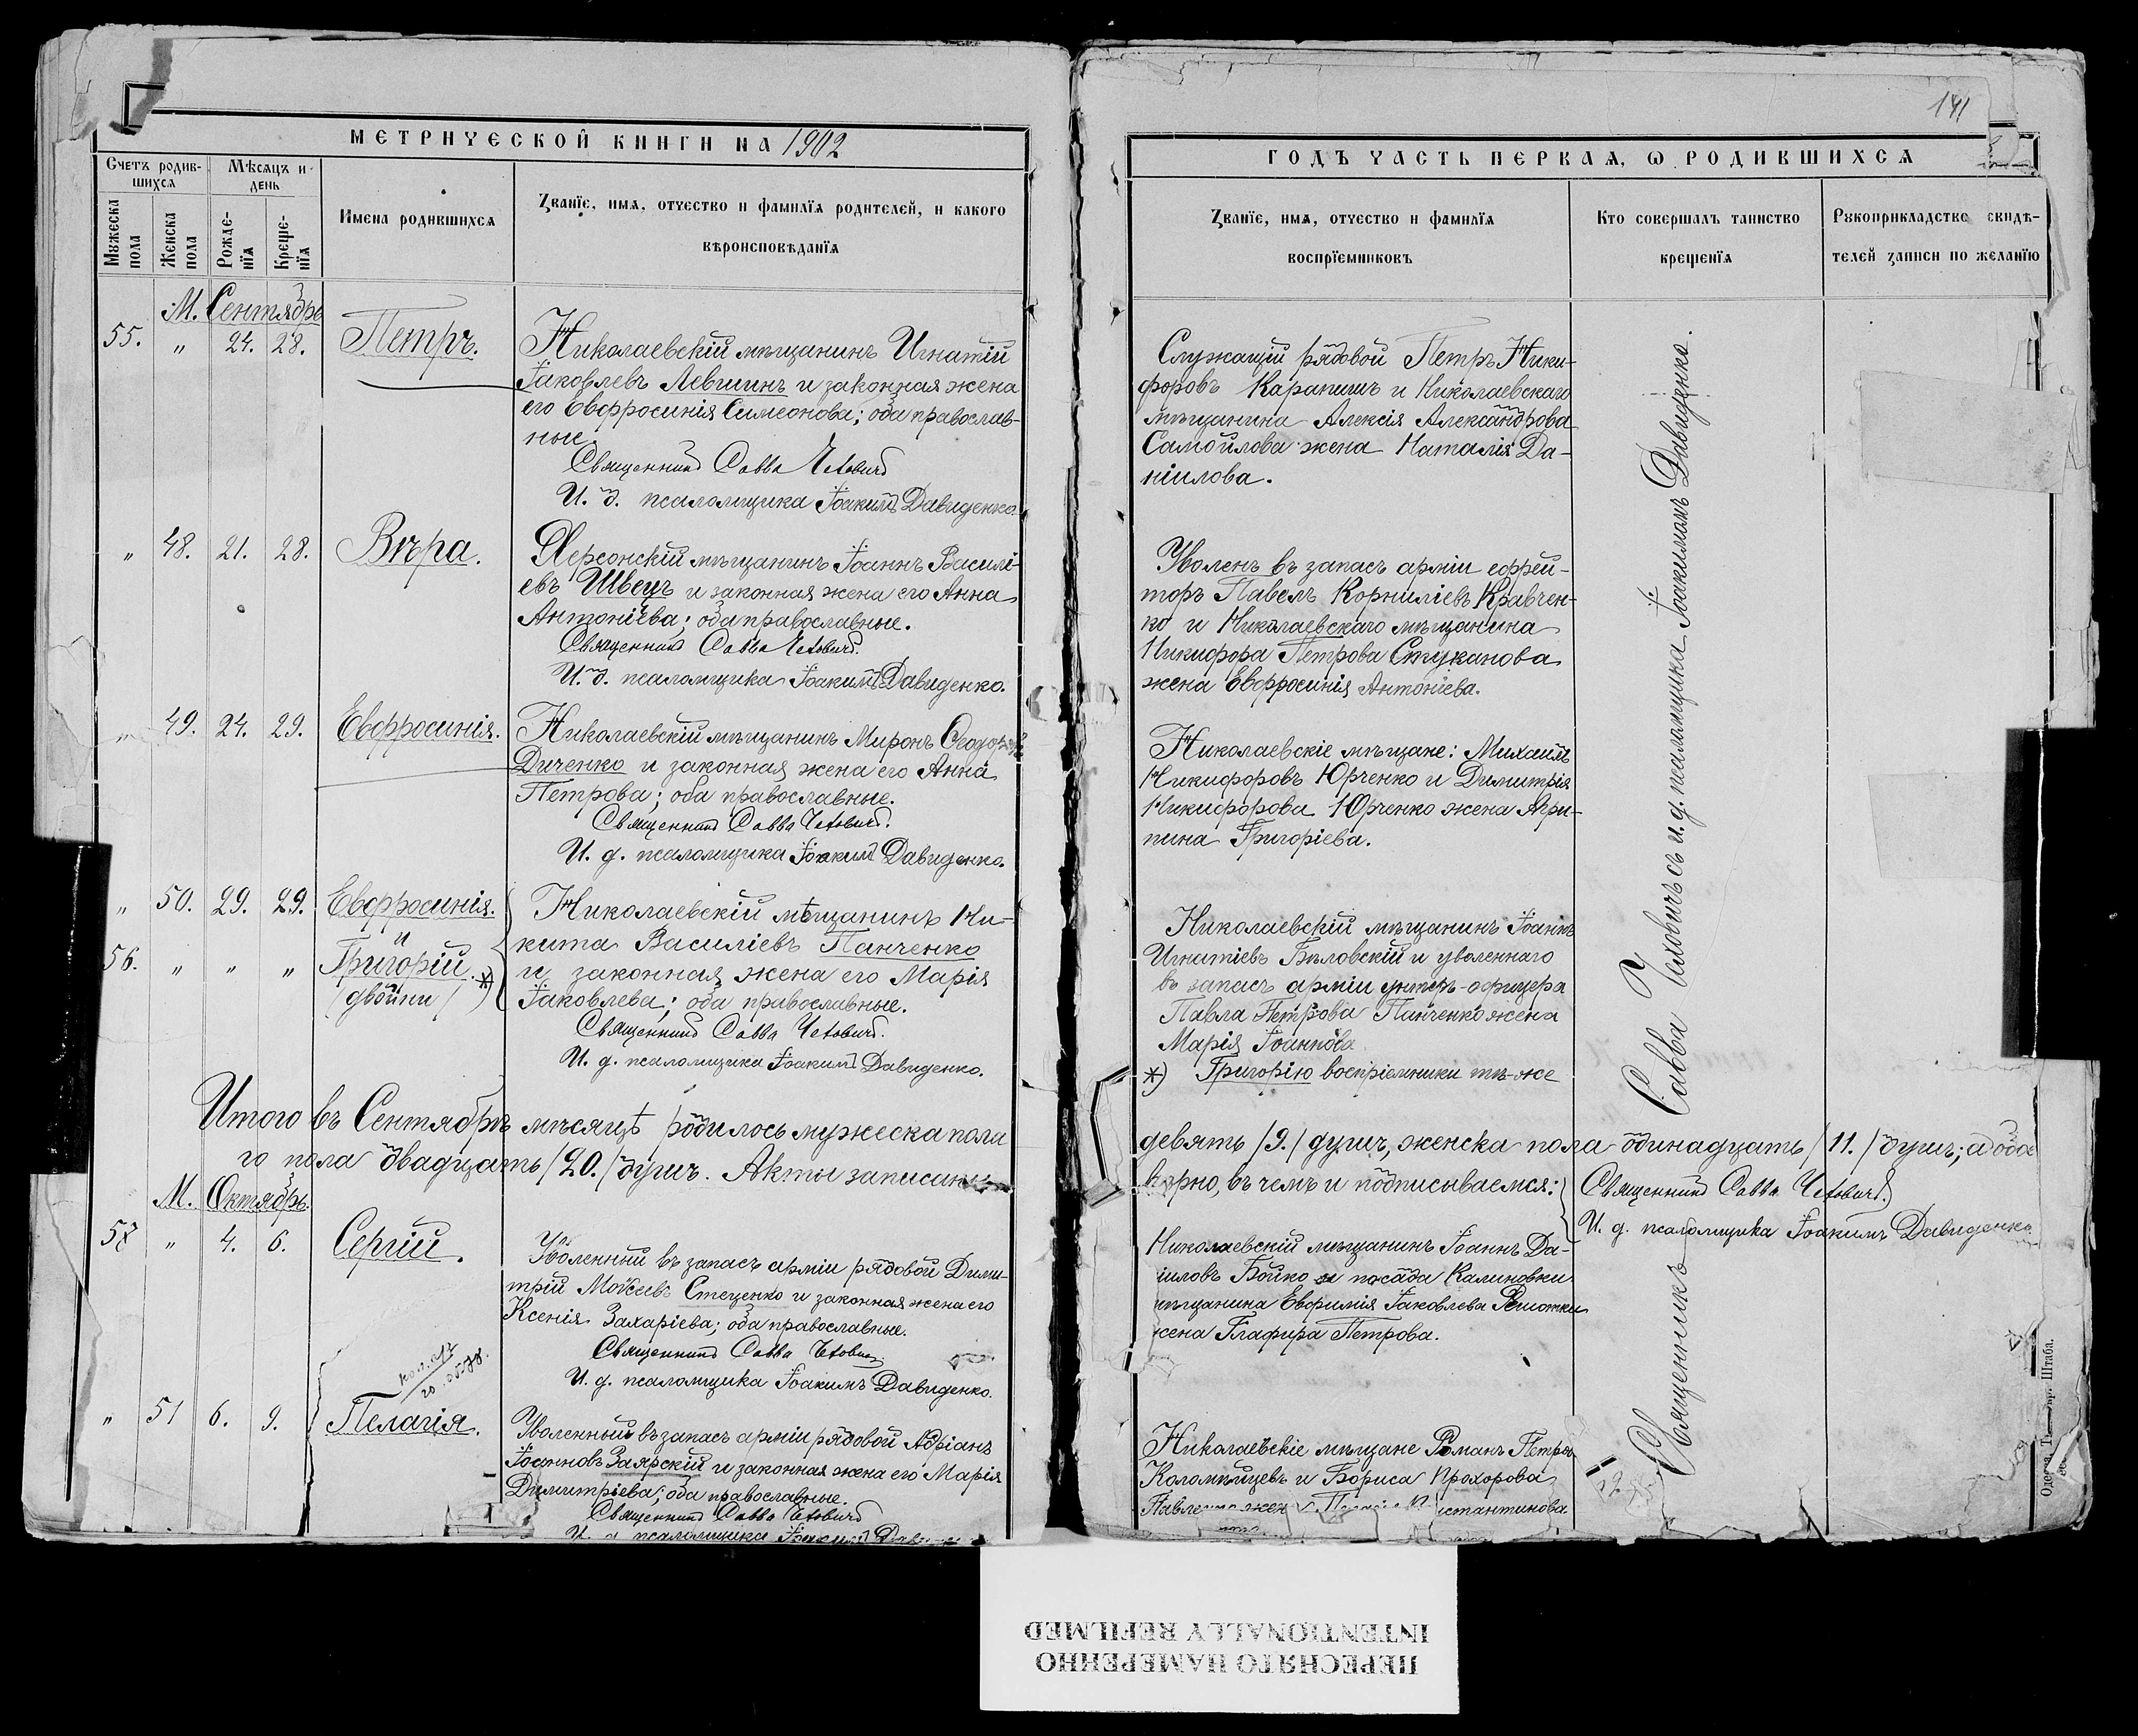 МЕТРИЧЕСКОЙ КНИГИ НА 1902
Счетъ родив-
шихся
Мѣсяцъ и
день
Мужеска
пола
Женска
пола
Рожде-
нїя
Креще-
нїя
Имена родившихся
Званїе, имя, отчество и фамилїя родителей, и какого
вѣроисповѣданїя
М. Сентябрь
55. „ 24. 28. Петръ.
Николаевскій мѣщанинъ Игнатій
Іаковлевъ Левшинъ и законная жена
его Евфросинія Симеонова; оба православ-
ные.
Священникъ Савва Чехович
И. д. псаломщика Іоакимъ Давиденко.
„ 48. 21. 28. Вѣра.
Херсонскій мѣщанинъ Іоаннъ Василі-
евъ Швецъ и законная жена его Анна
Антоніева; оба православные.
Священникъ Савва Чехович.
И. д. псаломщика Іоакимъ Давиденко.
„ 49. 24. 29. Евфросинія.
Николаевскій мѣщанинъ Миронъ Ѳеодоровъ
Диченко и законная жена его Анна
Петрова; оба православные.
Священникъ Савва Чехович.
И. д. псаломщика Іоакимъ Давиденко.
„ 50. 29. 29. Евфросинія.
и
56. „ „ „ Григорій. *)
/двойни/
Николаевскій мѣщанинъ Ни-
кита Василіевъ Панченко
и законная жена его Марія
Іаковлева; оба православные.
Священникъ Савва Чехович.
И. д. псаломщика Іоакимъ Давиденко.
Итого въ Сентябрѣ мѣсяцѣ родилось мужеска пола
го пола двадцать /20./ душъ. Акты записаны
М. Октябрь.
57 „ 4. 6. Сергій.
Уволенный въ запасъ арміи рядовой Дими-
трій Моисеевъ Стеценко и законная жена его
Ксенія Захаріева; оба православные.
Священникъ Савва Чехович
И. д. псаломщика Іоакимъ Давиденко.
„ 51 6. 9. Пелагія.
Уволенный въ запасъ арміи рядовой Адріанъ
Іоанновъ Заярскій и законная жена его Марія
Димитріева; оба православные.
Священникъ Савва Чехович
И. д. псаломщика Іоакимъ
141
ГОДЪ ЧАСТЬ ПЕРВАЯ, Ѡ РОДИВШИХСЯ
Званїе, имя, отчество и фамилїя
воспрїемниковъ
Кто совершалъ таинство
крещенїя
Рукоприкладство свидѣ-
телей записи по желанїю
Служащій рядовой Петръ Ники-
форовъ Карапишъ и Николаевскаго
мѣщанина Алексія Александрова
Самойлова жена Наталія Да-
ніилова.
Уволенъ въ запасъ арміи ефрей-
торъ Павелъ Корниліевъ Кравчен-
ко и Николаевскаго мѣщанина
Никифора Петрова Стуканова
жена Евфросинія Антоніева.
Николаевскіе мѣщане: Михаилъ
Никифоровъ Юрченко и Димитрія
Никифорова Юрченко жена Агри-
пина Григоріева.
Николаевскій мѣщанинъ Іоаннъ
Игнатіевъ Бѣловскій и уволеннаго
въ запасъ арміи унтеръ-офицера
Павла Петрова Панченко жена
Марія Іоаннова
*) Григорію воспріемники тѣ-же
девять /9./ душъ, женска пола одинадцать /11./ душъ; а обое
вѣрно, въ чемъ и подписываемся:
Священникъ Савва Чехович
И. д. псаломщика Іоакимъ Давиденко
Николаевскій мѣщанинъ Іоаннъ Да-
ніиловъ Бойко и посада Калиновки
мѣщанина Евфимія Іаковлева
жена Глафира Петрова.
Николаевскіе мѣщане Романъ Петровъ
Коломійцевъ и Бориса Прохорова
Священникъ Савва Чеховичъ съ и. д. псаломщика Іоакимомъ Давиденко.
ПЕРЕСНЯТО НАМЕРЕННО
INTENTIONALLY REFILMED